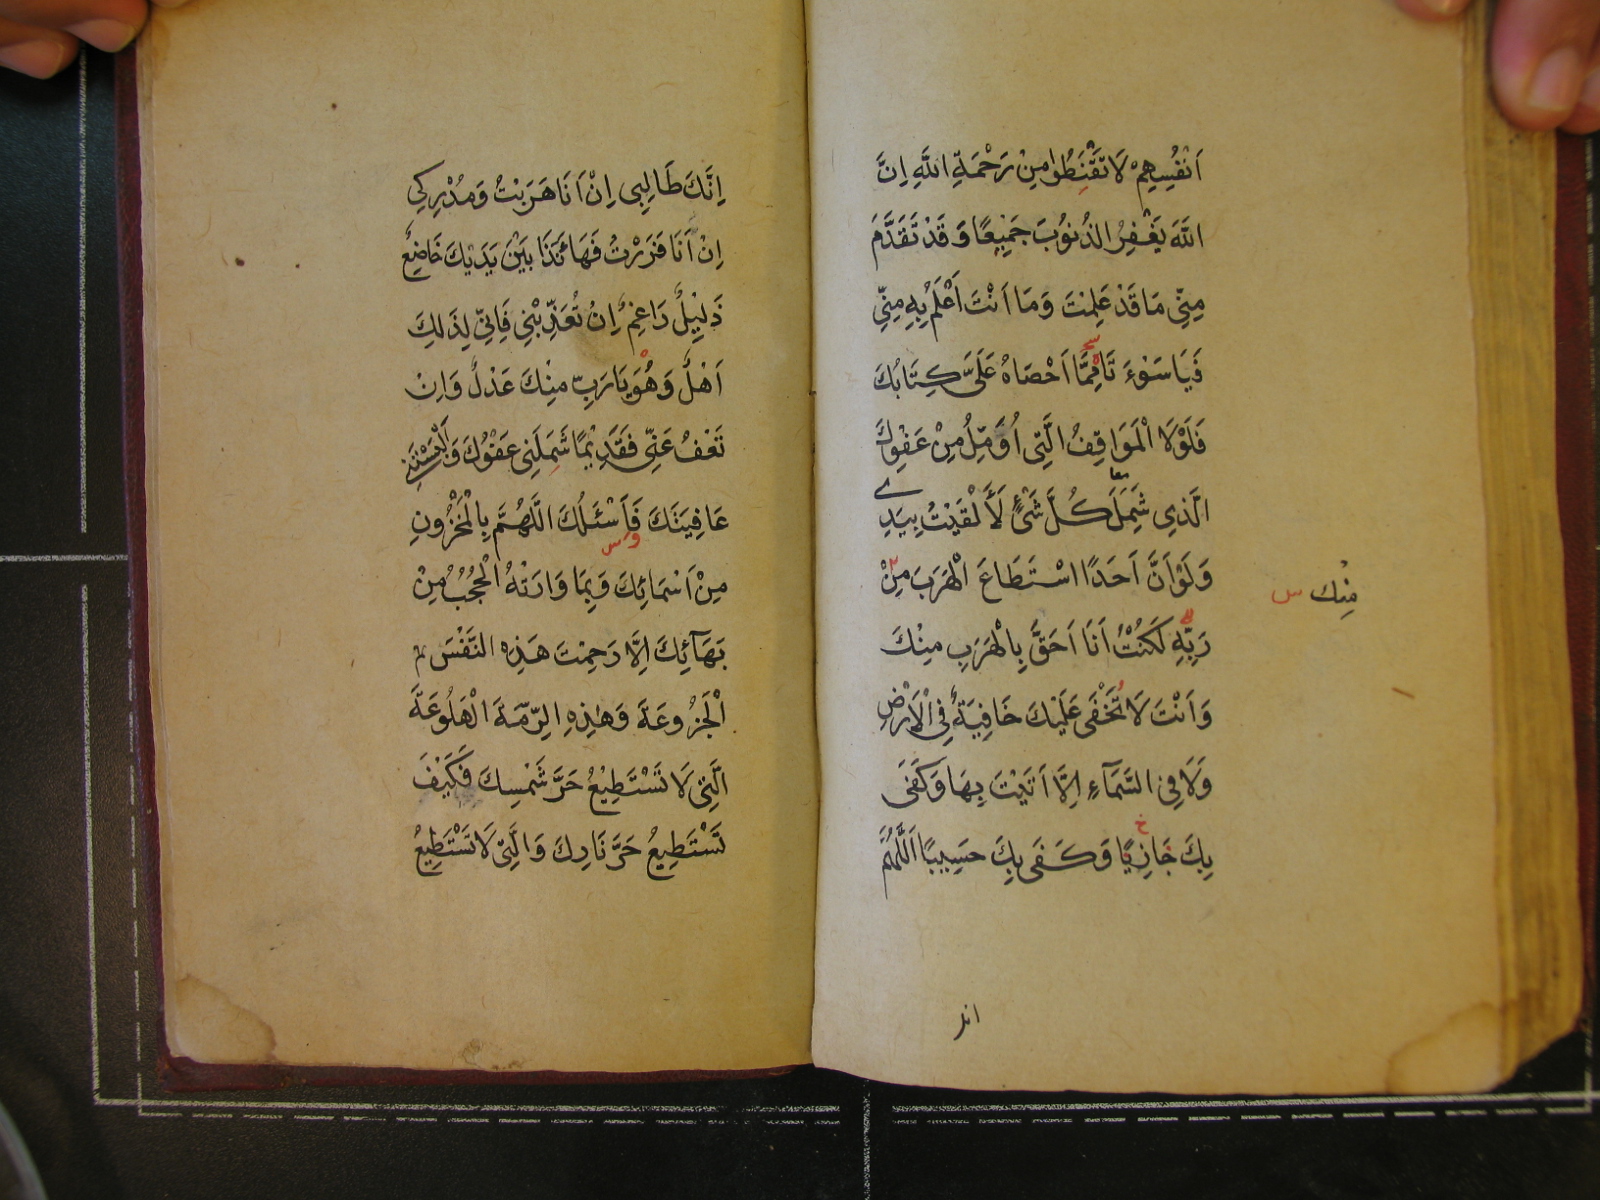 اَنْفُسِهِمْ لَا تَقْنَطُوا مِنْ رَحْمَةِ اللَّهِ اِنَّ
اللَّهَ يَغْفِرُ الذُنُوبَ جَمِيْعًا وَ قَدْ تَقَدَّمَ
مِنِّي مَا قَدْ عَلِمْتَ وَ مَا اَنْتَ اَعْلَمُ بِهِ مِنِّي
فَيَا سَوْءَ تَا مِمَّا اَحْصَاهُ عَلَيَّ كِتَابُكَ
فَلَوْلَا الْمَوَاقِفُ الَّتِي اُوَمِّلُ مِنْ عَفْوِكَ
الَّذِي شَمِلَ كُلَّ شَيْءٍ لَاَلْقَيْتُ بِيَدِي
وَ لَوْ اَنَّ اَحَدًا اسْتَطَاعَ الْهَرَبَ مِنْ
مِنْكَ س
رَبِّهِ لَكُنْتُ اَنَا اَحَقَّ بِالْهَرَبِ مِنْكَ
وَ اَنْتَ لَا تَخْفَى عَلَيْكَ خَافِيَةٌ فِي الْاَرْضِ
وَ لَا فِي السَّمَآءِ اِلَّا اَتَيْتَ بِهَا وَ كَفَى
بِكَ جَازِيًا وَ كَفَى بِكَ حَسِيبًا اَللَّهُمَّ
انك
اِنَّكَ طَالِبِي اِنْ اَنَا هَرَبْتُ وَ مُدْرِكِي
اِنْ اَنَا فَرَرْتُ فَهَا نَذَا بَيْنَ يَدَيْكَ خَاضِعٌ
ذَلِيْلٌ رَاغِمٌ اِنْ تُعَذِّبْنِي فَاِنِّي لِذَلِكَ
اَهْلٌ وَ هُوَ يَا رَبِّ مِنْكَ عَدْلٌ وَ اِنْ
تَعْفُ عَنِّي فَقَدِيْمًا شَمِلَنِي عَفْوُكَ وَ اَلْبَسْتَنِي
عَافِيَتَكَ فَاَسْئَلُكَ اللَّهُمَّ بِالْمَخْزُونِ
مِنْ اَسْمَائِكَ وَ بِمَا وَارَتْهُ الْحُجُبُ مِنْ
بَهَآئِكَ اِلَّا رَحِمْتَ هَذِهِ النَّفْسَ
الْجَزُوعَةَ وَ هٰذِهِ الرِّمَّةَ الْهَلُوعَةَ
الَّتِي لَا تَسْتَطِيْعُ حَرَّ شَمْسِكَ فَكَيْفَ
تَسْتَطِيعُ حَرَّ نَارِكَ وَ الَّتِي لَا تَسْتَطِيعُ